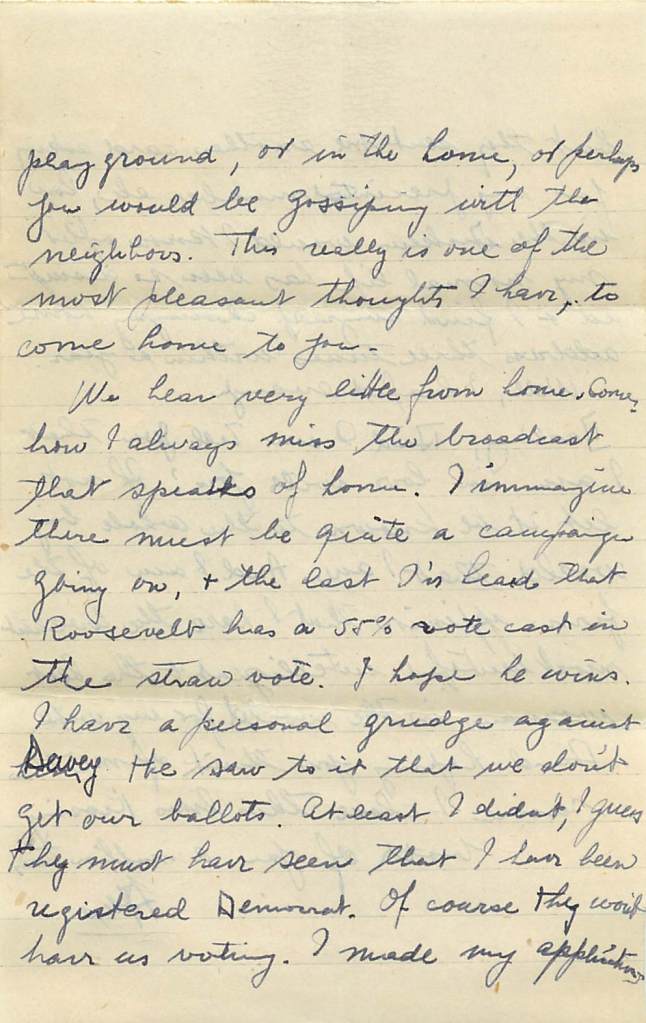 playground, or in the home, or perhaps
you would be gossiping with the
neighbors. This really is one of the
most pleasant thoughts I have, to
come home to you.
We hear very little from home. Some,
how I always miss the broadcast
that speaks of home. I immagine
there must be quite a campaign
going on, + the last I'v head that
Roosevelt has a 55% vote cast in
the straw vote. I hope he wins.
I have a personal grudge against
Dewey He saw to it that we don't
get our ballots. At least I didn't, I guess
they must have seen that I have been
registered Democrat. Of course they won't
have us voting. I made my applications